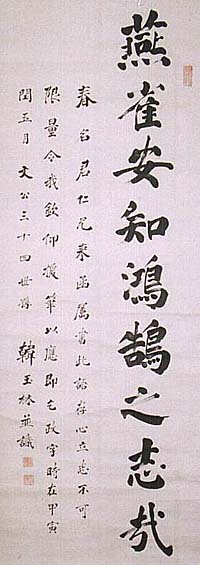 燕雀安知鴻鵠之志哉
春台君仁兄来函属書此語存心立志不可
限量令我欽仰援筆以應即乞政字時在甲寅
閏五月 文公三十四世孫 韓玉林並識